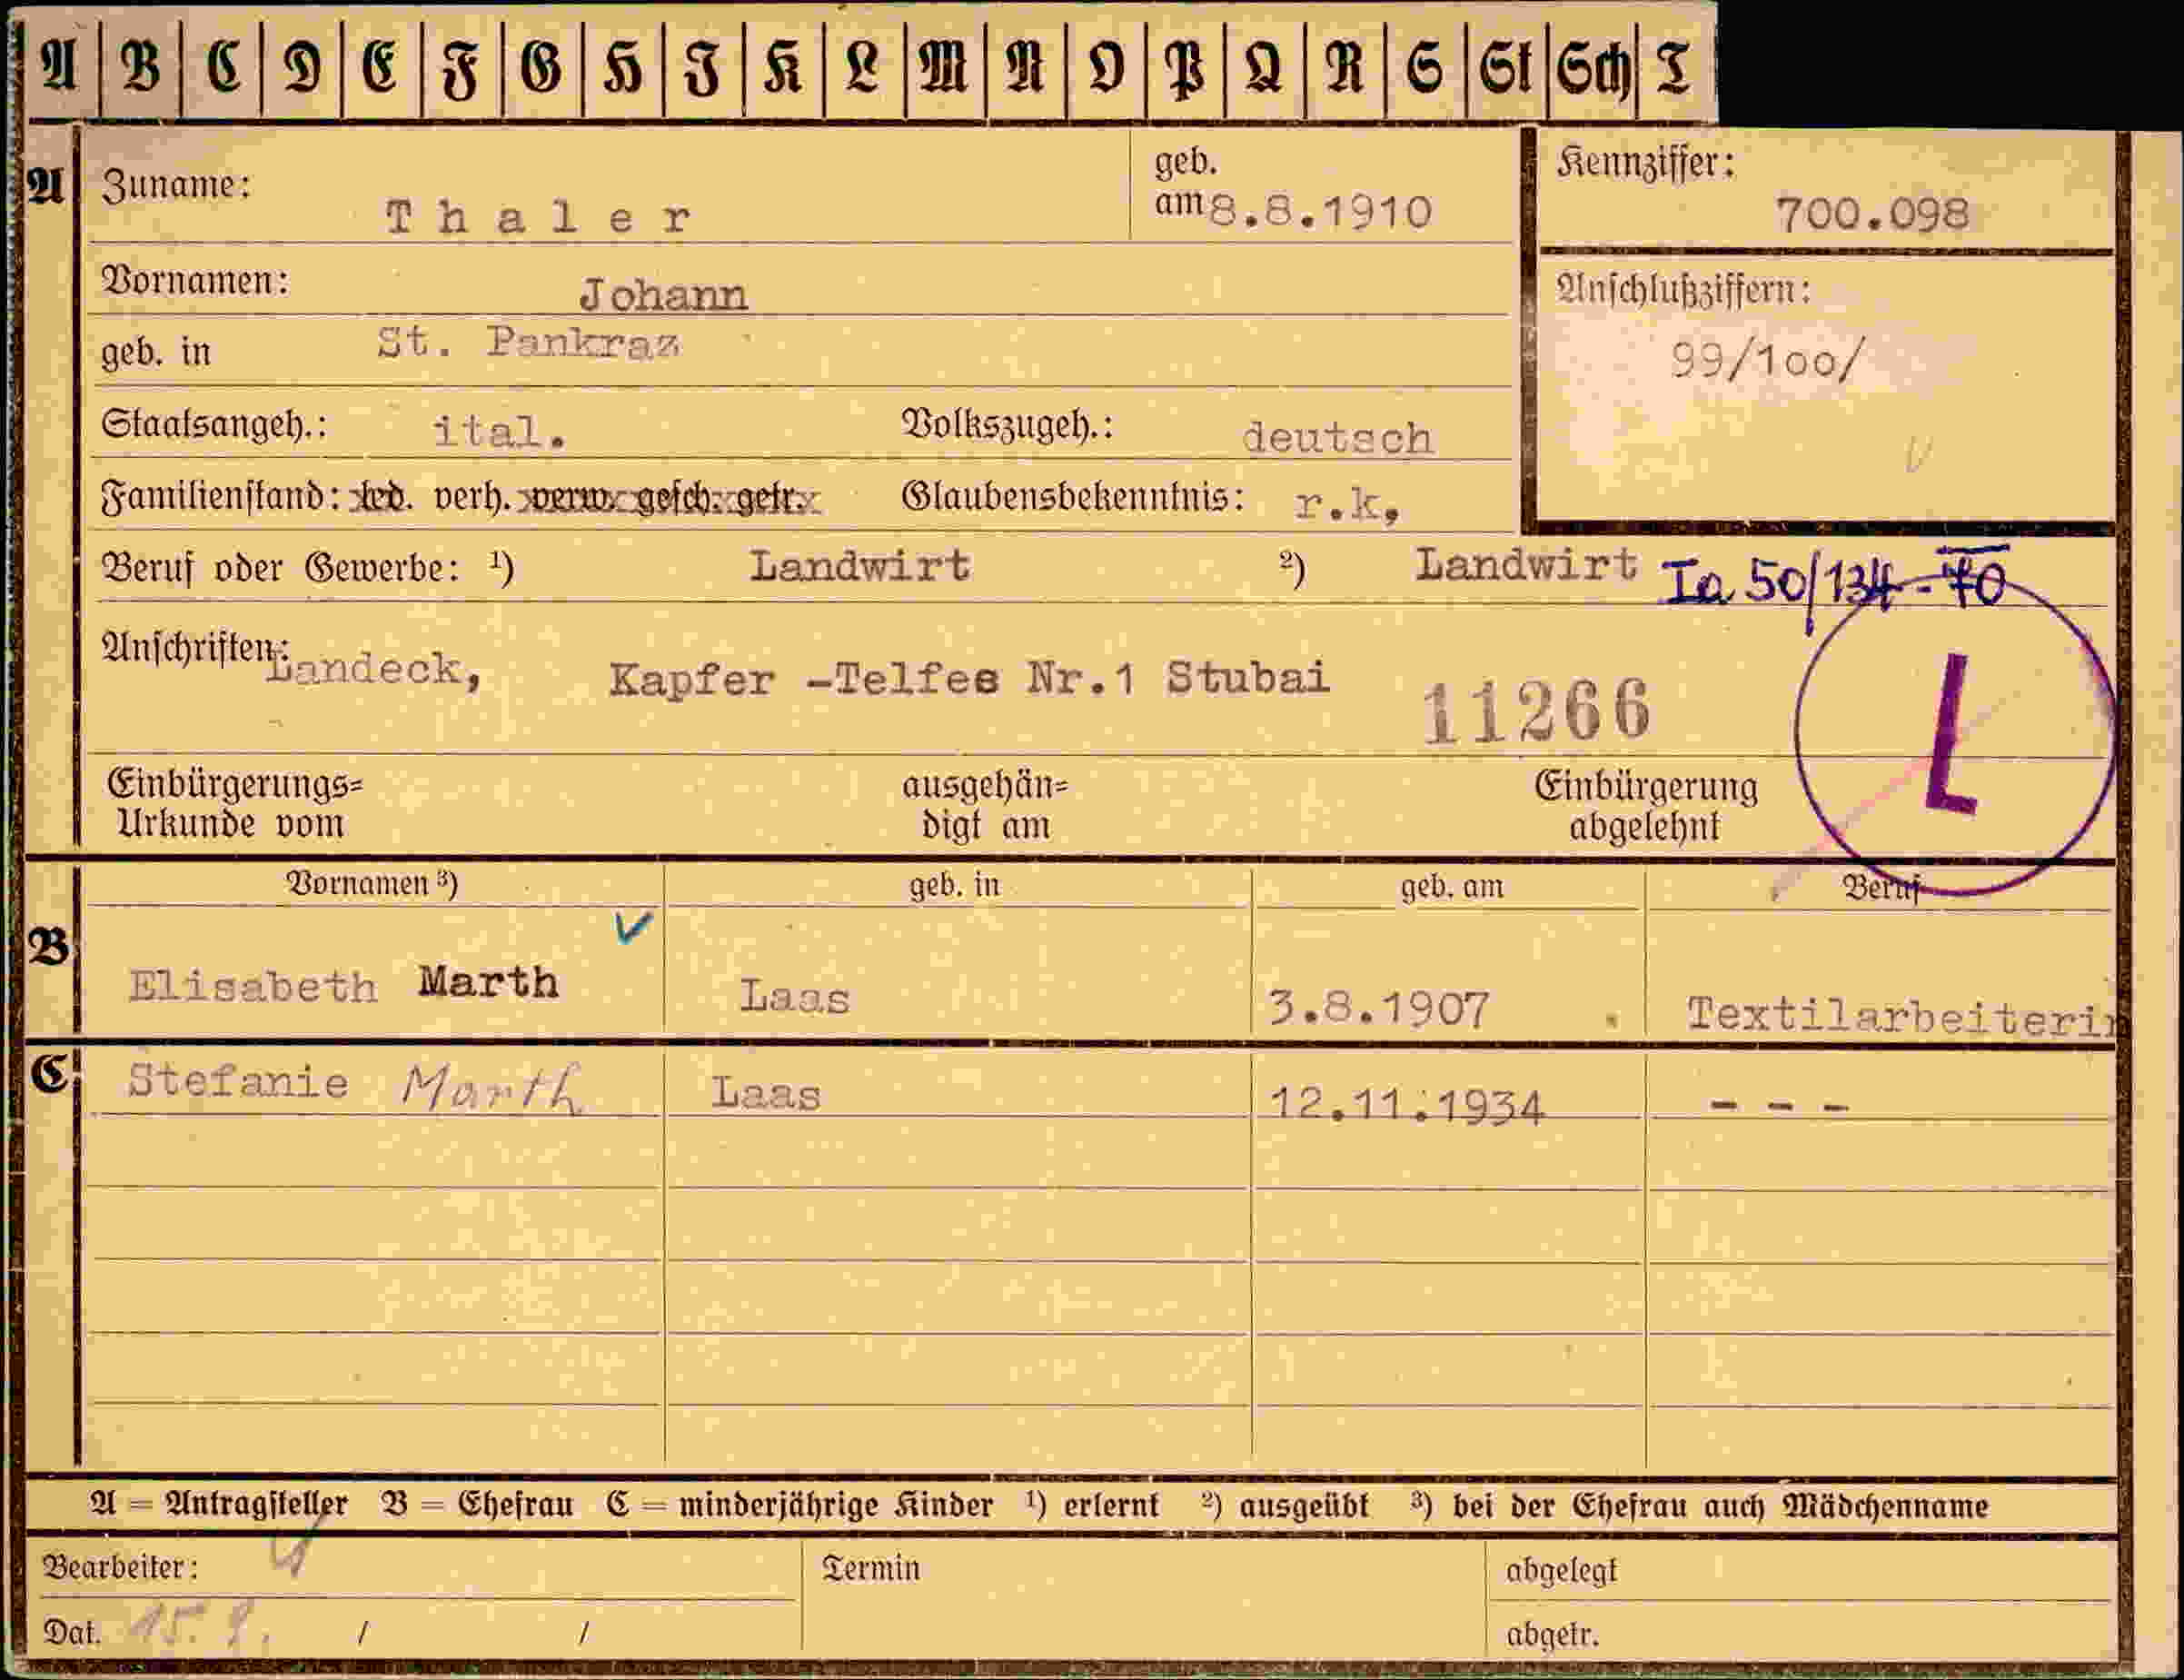 A B C D E F G H I K L M N O P Q R S St Sch T
A Zuname: Thaler geb. am 8.8.1910 Kennziffer: 700.098
Vornamen: Johann
geb. in St. Pankraz
Anschlußziffern: 99/100/
Staatsangeh.: ital. Volkszugeh.: deutsch
Familienstand: led. verh. verw. gesch. getr. Glaubensbekenntnis: r.k,
Beruf oder Gewerbe: 1) Landwirt 2) Landwirt Ia 50/134-70
Anschriften: Landeck, Kapfer -Telfes Nr.1 Stubai
11266
L
Einbürgerungs= ausgehän= Einbürgerung
Urkunde vom digt am abgelehnt
Vornamen 3) geb. in geb. am Beruf
B Elisabeth Marth Laas 3.8.1907 Textilarbeiterin
C Stefanie Marth Laas 12.11.1934 - - -
A = Antragsteller B = Ehefrau C = minderjährige Kinder 1) erlernt 2) ausgeübt 3) bei der Ehefrau auch Mädchenname
Bearbeiter: Termin abgelegt
Dat. 15. 9. / / abgetr.